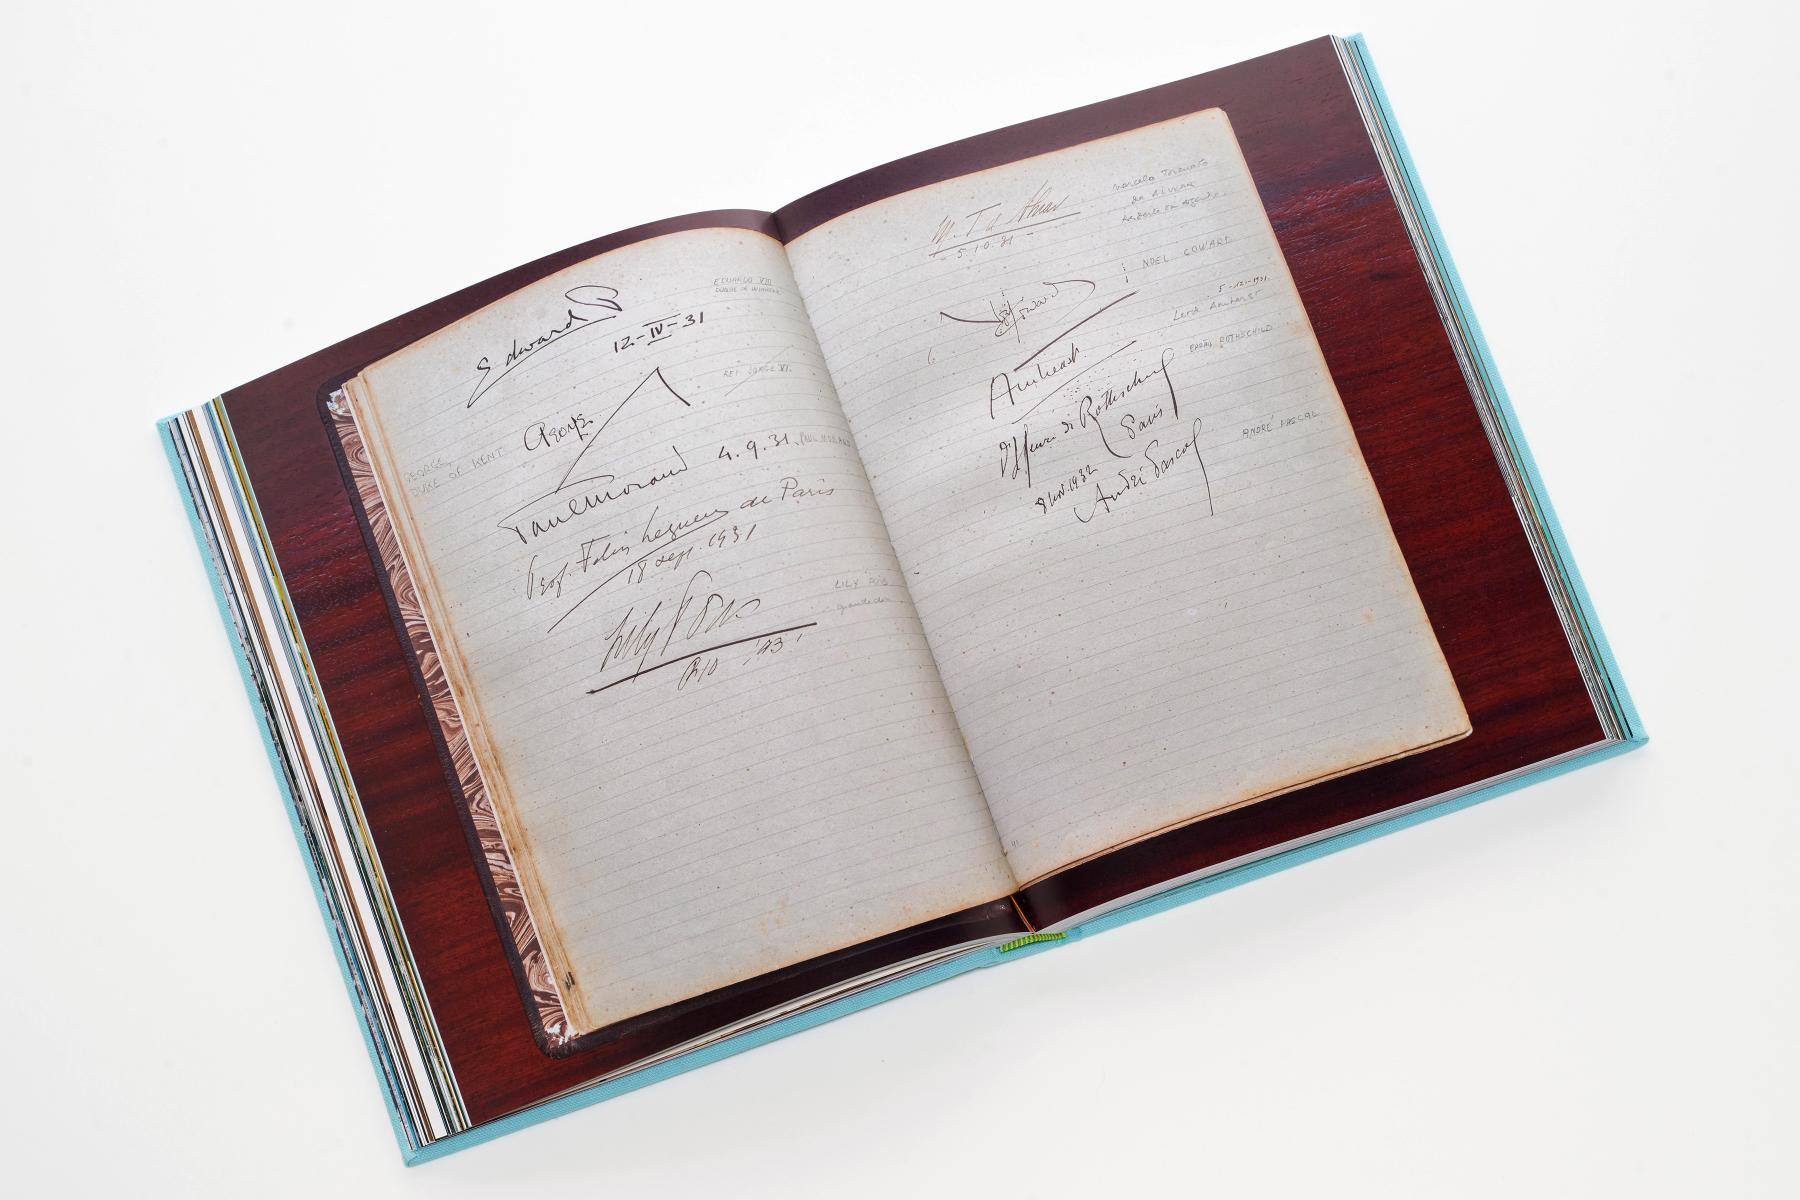 Edward P
EDUARDO VIII
DUQUE DE WINDSOR
12-IV-31
REI JORGE VI.
George
GEORGE,
DUKE OF KENT
Paul Morand 4.9.31 PAUL MORAND
Prof. Felix Legueu de Paris
18 sept. 1931
Lily Pons
LILY PONS
Rio
M. T. de Alvear
5.10.31
Marcelo Torcuato
de ALVEAR
NOEL COWARD
Noel Coward
5-12-1931.
Lord Amherst
Amherst
BARÃO ROTHSCHILD
Dr Henri de Rothschild
Paris
1932
André Pascal
ANDRÉ PASCAL